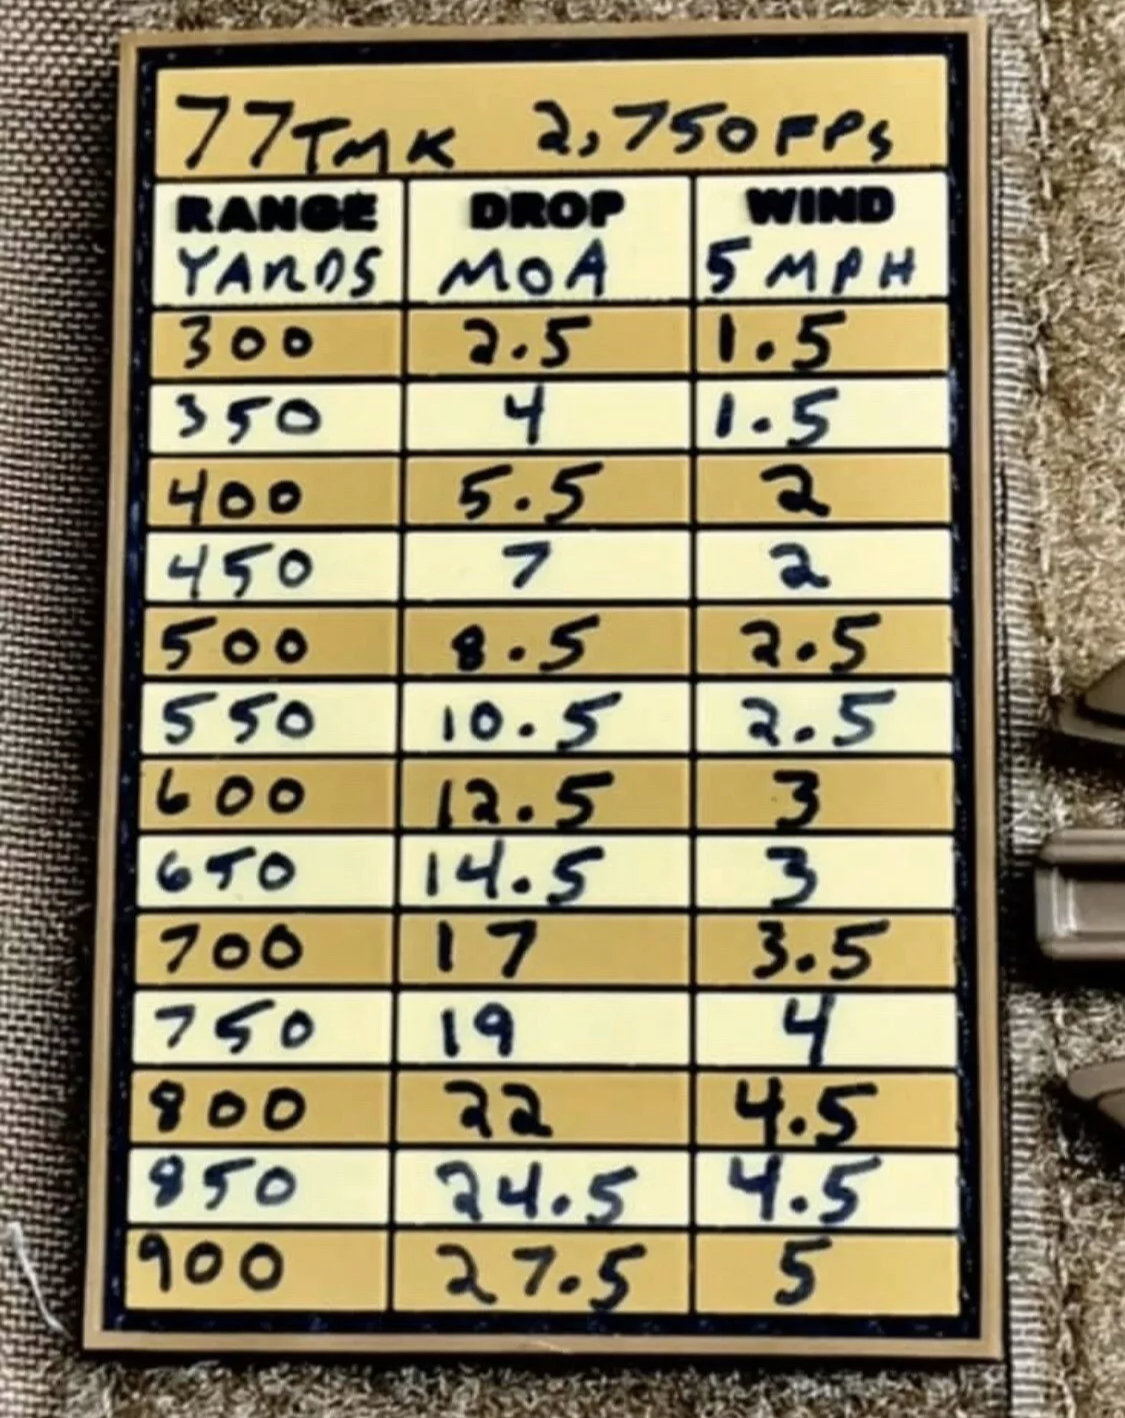 77TMK 2,750FPS
RANGE DROP WIND
YARDS MOA 5 MPH
300 2.5 1.5
350 4 1.5
400 5.5 2
450 7 2
500 8.5 2.5
550 10.5 2.5
600 12.5 3
650 14.5 3
700 17 3.5
750 19 4
800 22 4.5
850 24.5 4.5
900 27.5 5